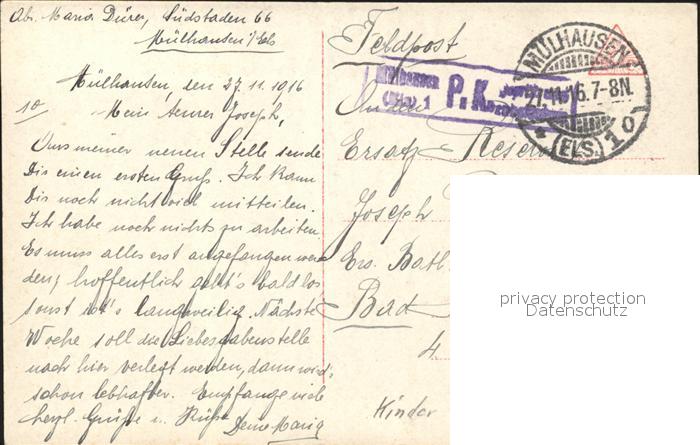 Ab. Maria Dürer, Südstaden 66
Mülhausen i/Els
Mülhausen, den 27.11.1916
10
Mein teurer Joseph,
Aus meiner neuen Stelle sende
Dir einen ersten Gruß. Ich kann
Dir noch nicht viel mitteilen.
Ich habe noch nichts zu arbeiten.
Es muss alles erst angefangen wer
den, hoffentlich geht's bald los
sonst ist's langweilig. Nächste
Woche soll die Liebesgabenstelle
nach hier verlegt werden, dann wird's
schon lebhafter. Empfange viele
herzl. Grüße u. Küße
Deine Maria
Feldpost
MÜLHAUSEN
27.11.16.7-8N.
* (ELS.) 1 o
Mülhausen
(Els.) 1
P.K.
An den
Ersatz Reserv
Joseph
Ers. Batl.
Bad
4
Kinder
privacy protection
Datenschutz